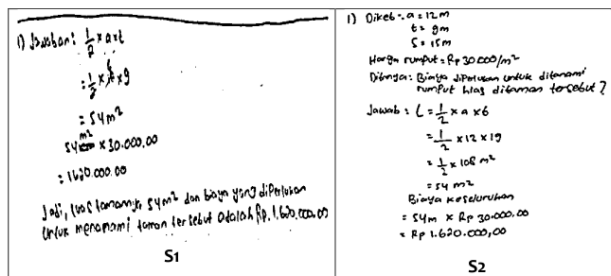 1) Jawaban: 1/2 x a x t
= 1/2 x 12 x 9
= 54 m²
54 m² x 30.000.00
= 1620.000.00
Jadi, luas tamannya 54 m² dan biaya yang diperlukan
untuk menanami taman tersebut adalah Rp. 1.620.000,00
S1
1) Diket: a = 12 m
t = 9m
S = 15m
Harga rumput = Rp 30.000/m²
Ditanya: Biaya diperlukan untuk ditanami
rumput hias ditaman tersebut?
Jawab: L = 1/2 x a x t
= 1/2 x 12 x 9
= 1/2 x 108 m²
= 54 m²
Biaya keseluruhan
= 54m x Rp 30.000.00
= Rp 1.620.000,00
S2